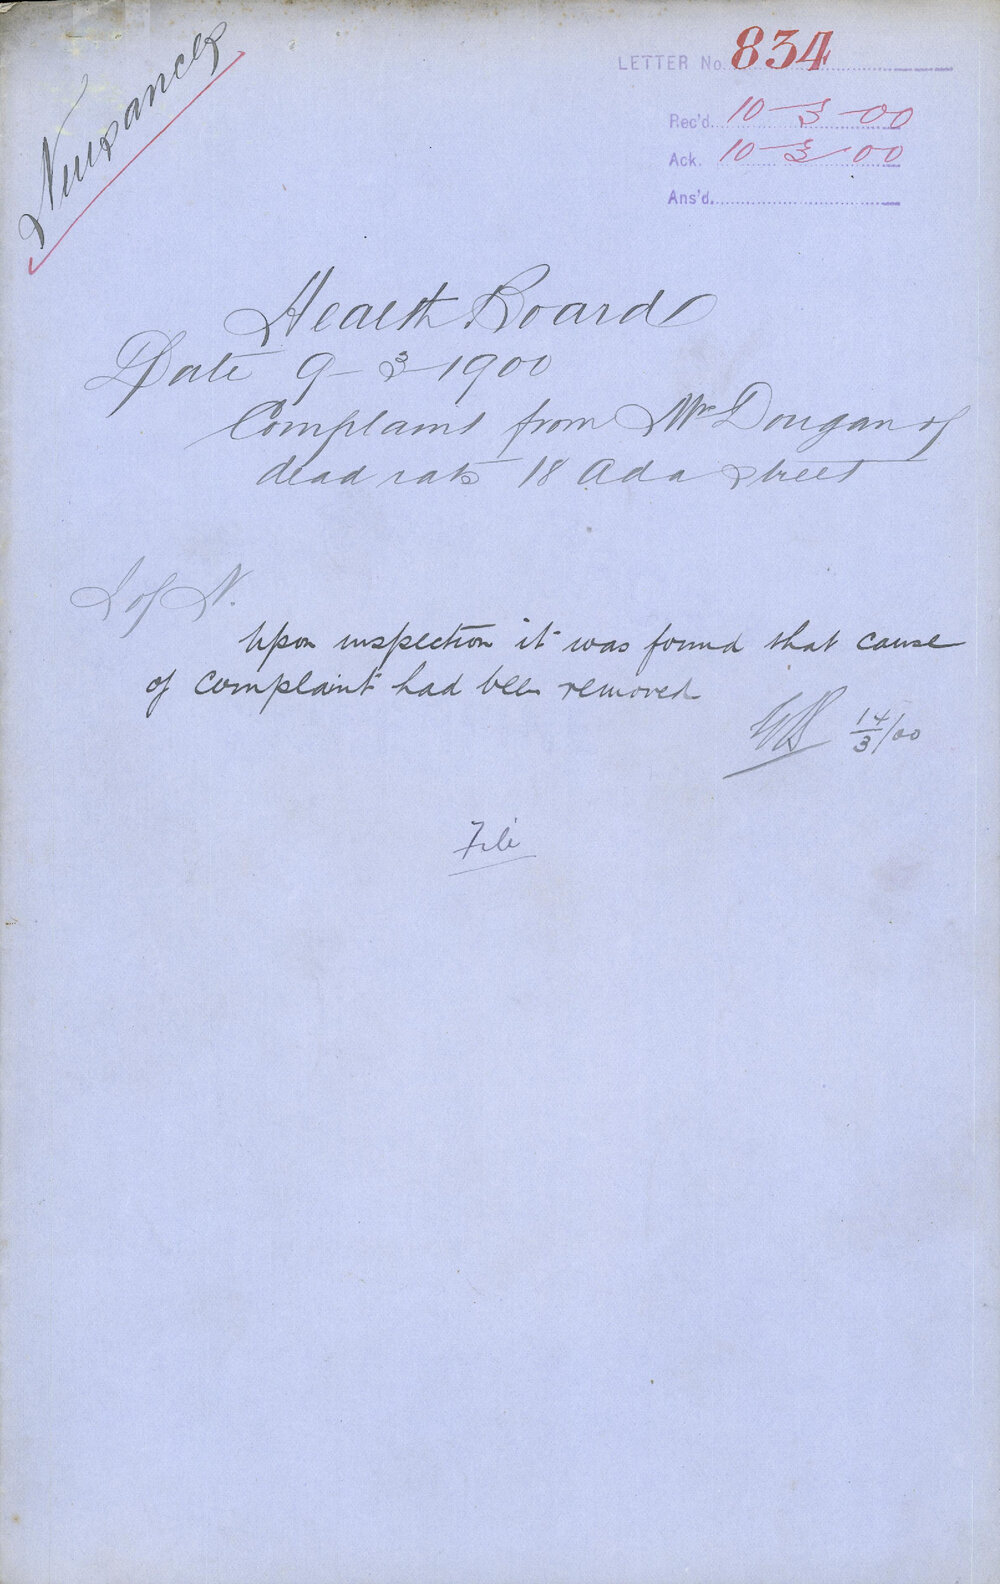 Nuisances
LETTER No. 834
Rec'd. 10-3-00
Ack. 10-3-00
Ans'd.
Health Board
Date 9-3-1900
Complaint from Mr Dougan of
dead rats 18 Ada Street
I of N.
Upon inspection it was found that cause
of complaint had been removed
14/3/00
File